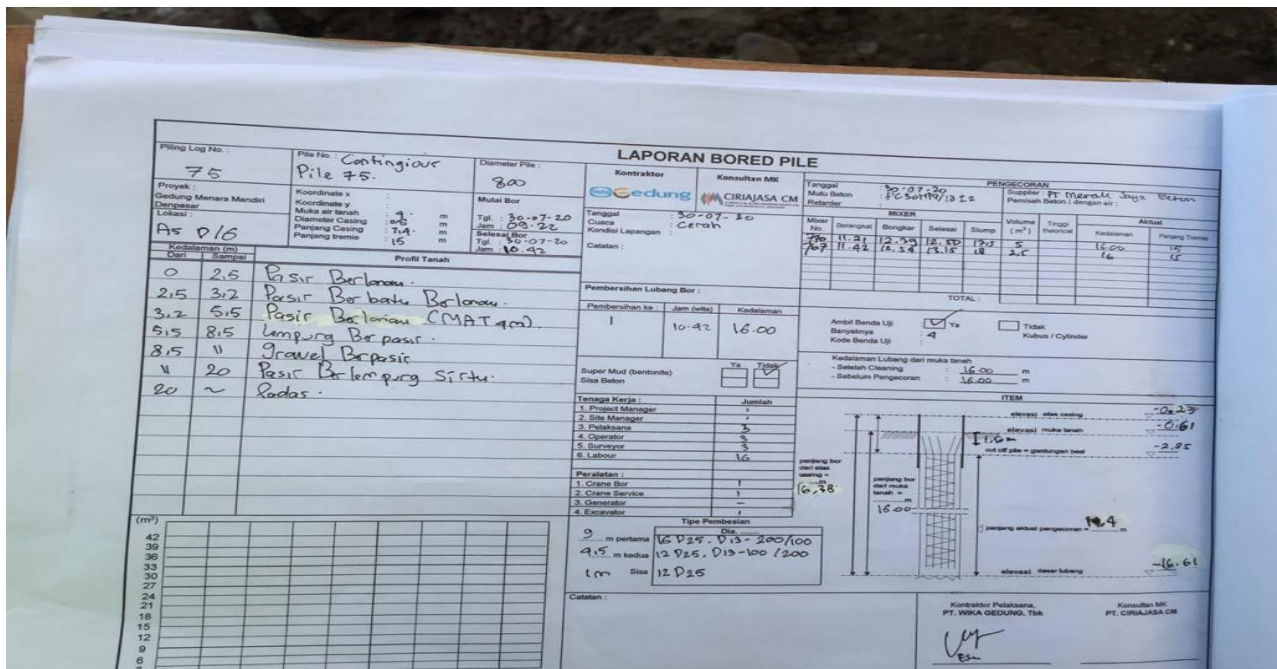 LAPORAN BORED PILE
Piling Log No. :
75
Pile No. : Contingious
Pile 75.
Diameter Pile :
800
Proyek :
Gedung Menara Mandiri
Denpasar
Lokasi :
As D/6
Koordinate x :
Koordinate y :
Muka air tanah : 4. m
Diameter Casing : m
Panjang Casing : 7.4. m
Panjang tremie : 15 m
Mulai Bor
Tgl. : 30-07-20
Jam : 09.22
Selesai Bor
Tgl. : 30-07-20
Jam : 10.42
Kedalaman (m)
Dari Sampai Profil Tanah
0 2,5 Pasir Berlanau.
2,5 3,2 Pasir Berbatu Berlanau.
3,2 5,5 Pasir Berlanau (MAT 4m).
5,5 8,5 Lempung Berpasir.
8,5 11 Gravel Berpasir
11 20 Pasir Berlempung Sirtu.
20 ~ Padas.
(m³)
42
39
36
33
30
27
24
21
18
15
12
9
6
Kontraktor
Gedung
Konsultan MK
CIRIAJASA CM
Tanggal : 30-07-20
Cuaca : Cerah
Kondisi Lapangan :
Catatan :
Pembersihan Lubang Bor :
Pembersihan ke : Jam (wita) Kedalaman
1 10.42 16.00
Ya Tidak
Super Mud (bentonite)
Sisa Beton
Tenaga Kerja : Jumlah
1. Project Manager 1
2. Site Manager 1
3. Pelaksana 3
4. Operator 3
5. Surveyor 3
6. Labour 16
Peralatan :
1. Crane Bor 1
2. Crane Service 1
3. Generator -
4. Excavator 1
Tipe Pembesian
Dia.
9 m pertama 16 D25. D13-200/100
4,5 m kedua 12 D25. D13-100/200
1m Sisa 12 D25
Catatan :
PENGECORAN
Tanggal : 30-07-20
Mutu Beton :
Retarder
Supplier : PT Merak Jaya Beton
Pemisah Beton / dengan air :
MIXER
Mixer No. Berangkat Bongkar Selesai Slump
Volume (m³) Tinggi theorical
Aktual
Kedalaman Panjang Tremie
770 11.21 12.39 12.50 17,5 5 16.00 15
767 11.42 13.15 18 2,5 16 15
TOTAL :
Ambil Benda Uji : Ya Tidak
Banyaknya : 4 Kubus / Cylinder
Kode Benda Uji :
Kedalaman Lubang dari muka tanah
- Setelah Cleaning : 16.00 m
- Sebelum Pengecoran : 16.00 m
ITEM
elevasi atas casing -0.23
elevasi muka tanah -0.61
1.6m
cut off pile = gantungan besi -2.85
panjang bor dari atas casing = m
16,38
panjang bor dari muka tanah = m
16.00
panjang aktual pengecoran = m
elevasi dasar lubang -16.61
Kontraktor Pelaksana,
PT. WIKA GEDUNG, Tbk
Konsultan MK
PT. CIRIAJASA CM